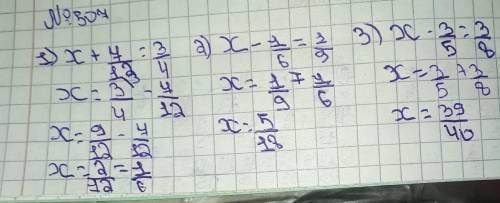 №507
1) x + 7/12 = 3/4
x = 3/4 - 7/12
x = 9/12 - 7/12
x = 2/12 = 1/6
2) x - 1/6 = 1/9
x = 1/9 + 1/6
x = 5/18
3) x - 3/5 = 3/8
x = 3/5 + 3/8
x = 39/40